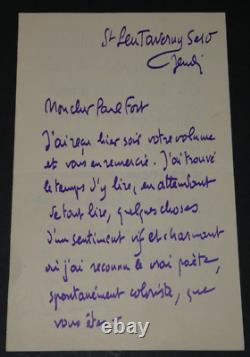 St Leu Taverny S et O
Jeudi
Mon cher Paul Fort
J'ai reçu hier soir votre volume
et vous en remercie. J'ai trouvé
le temps d'y lire, en attendant
de tout lire, quelques choses
d'un sentiment vif et charmant
où j'ai reconnu le vrai poète,
spontanément coloriste, que
vous êtes
ebay
1